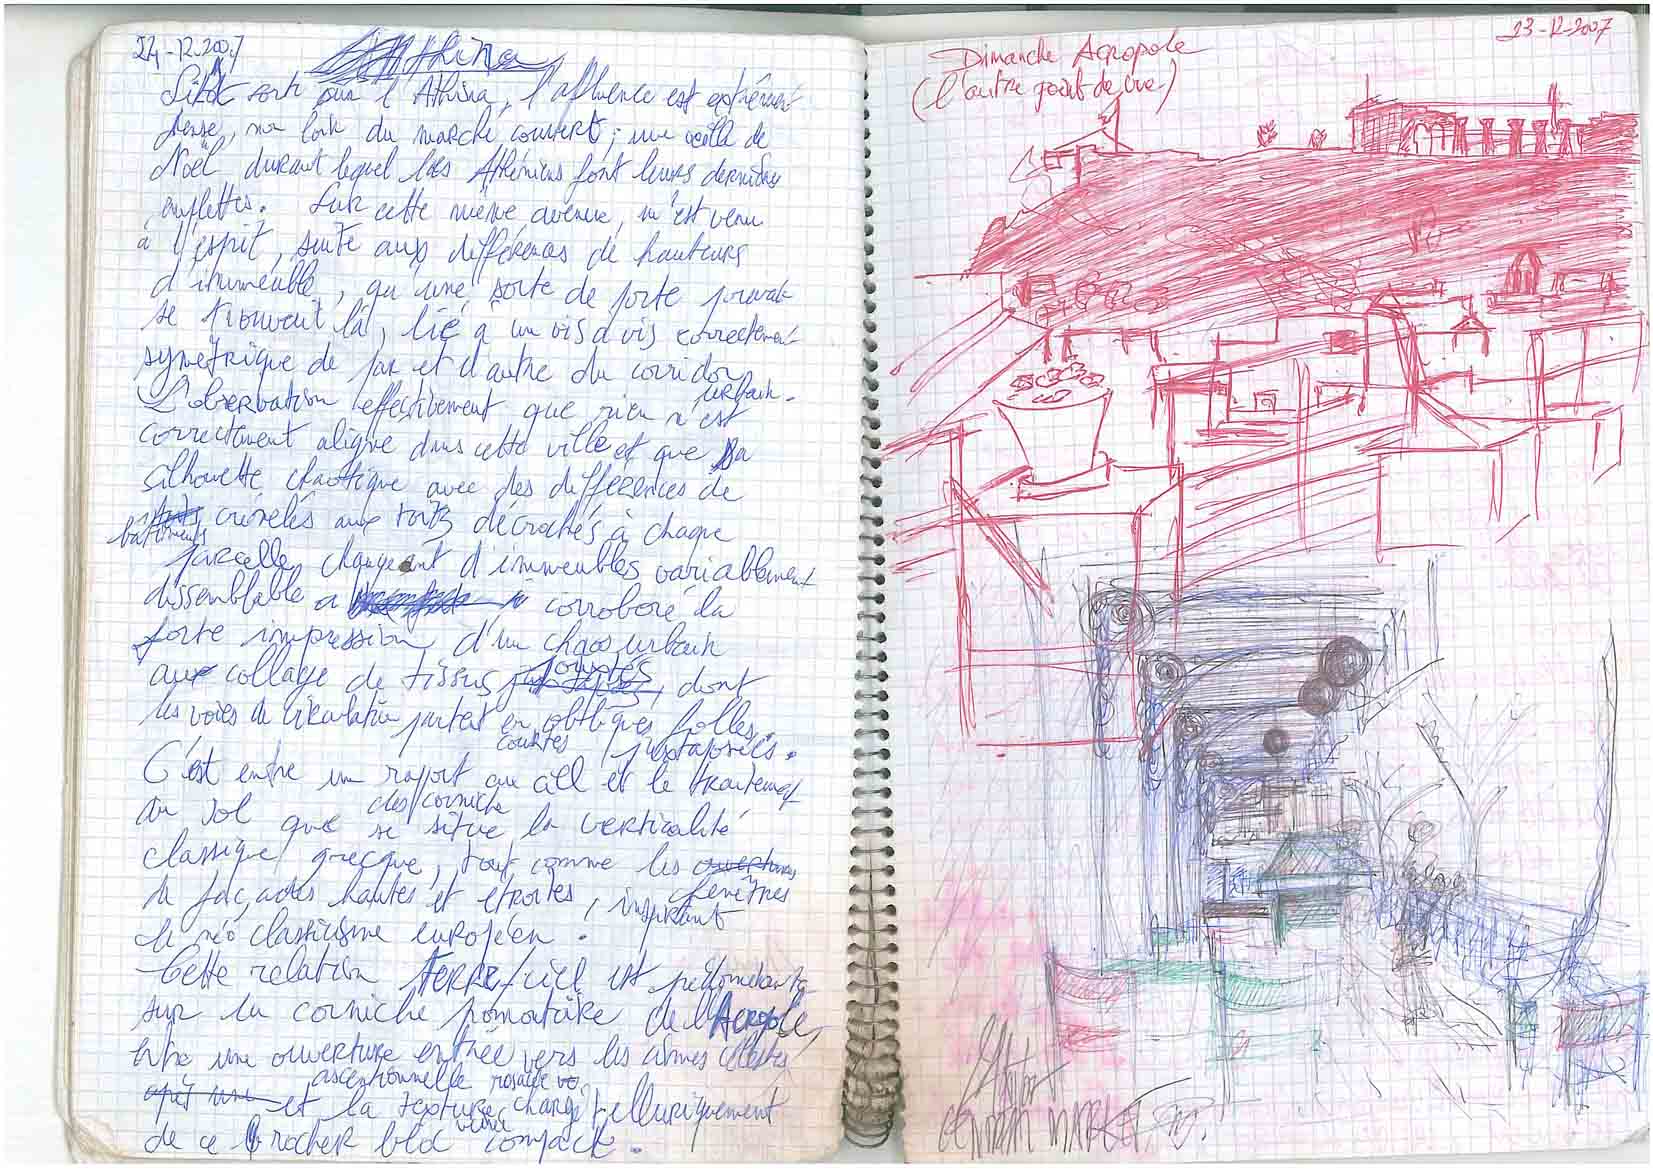 24-12-2007
Athina
Sitôt sorti sur l'Athina, l'affluence est extrêment
dense, non loin du marché couvert; une veille de
Noël durant lequel les Athéniens font leurs dernières
emplettes. Sur cette même avenue, m'est venu
à l'esprit, suite aux différences de hauteurs
d'immeuble, qu'une sorte de porte pouvait
se trouvent là, lié à un vis à vis correctement
symétrique de par et d'autre du corridor
urbain.
L'observation effectivement que rien n'est
correctement aligné dans cette ville et que sa
silhouette chaotique avec des différences de
bâtiments crénelés aux toits décrochés à chaque
parcelle changeant d'immeubles variablement
dissemblable a corroboré la
forte impression d'un chaos urbain
aux collage de tissus dont
les voies de circulation partent en obliques folles.
courtes juxtaposées.
C'est entre un rapport au ciel et le traitement
des corniche
du sol que se situe la verticalité
classique grecque, tout comme les ouvertures
fenêtres
de façades hautes et étroites, inspirant
le néo classicisme européen.
Cette relation terre/ciel est
sur la corniche de l'Acropole,
entre une ouverture entrée vers les cîmes célestes
ascentionnelle
et la texture change telluriquement
de ce rocher bloc compact.
23-12-2007
Dimanche Acropole
(l'autre point de vue)
MARKET